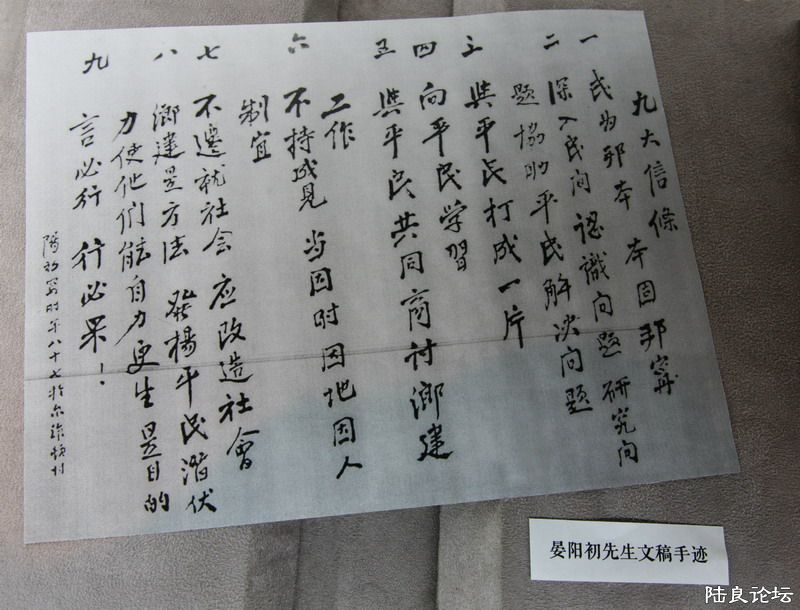 九大信條
一 民为邦本 本固邦寧
二 深入民间 認識问题 研究问
题 協助平民解决问题
三 與平民打成一片
四 向平民学習
五 與平民共同商讨鄉建
工作
六 不持成見 当因时因地因人
制宜
七 不遷就社会 应改造社會
八 鄉建是方法 發揚平民潜伏
力使他们能自力更生是目的
九 言必行 行必果！
陽初写时年八十七於
晏阳初先生文稿手迹
陆良论坛